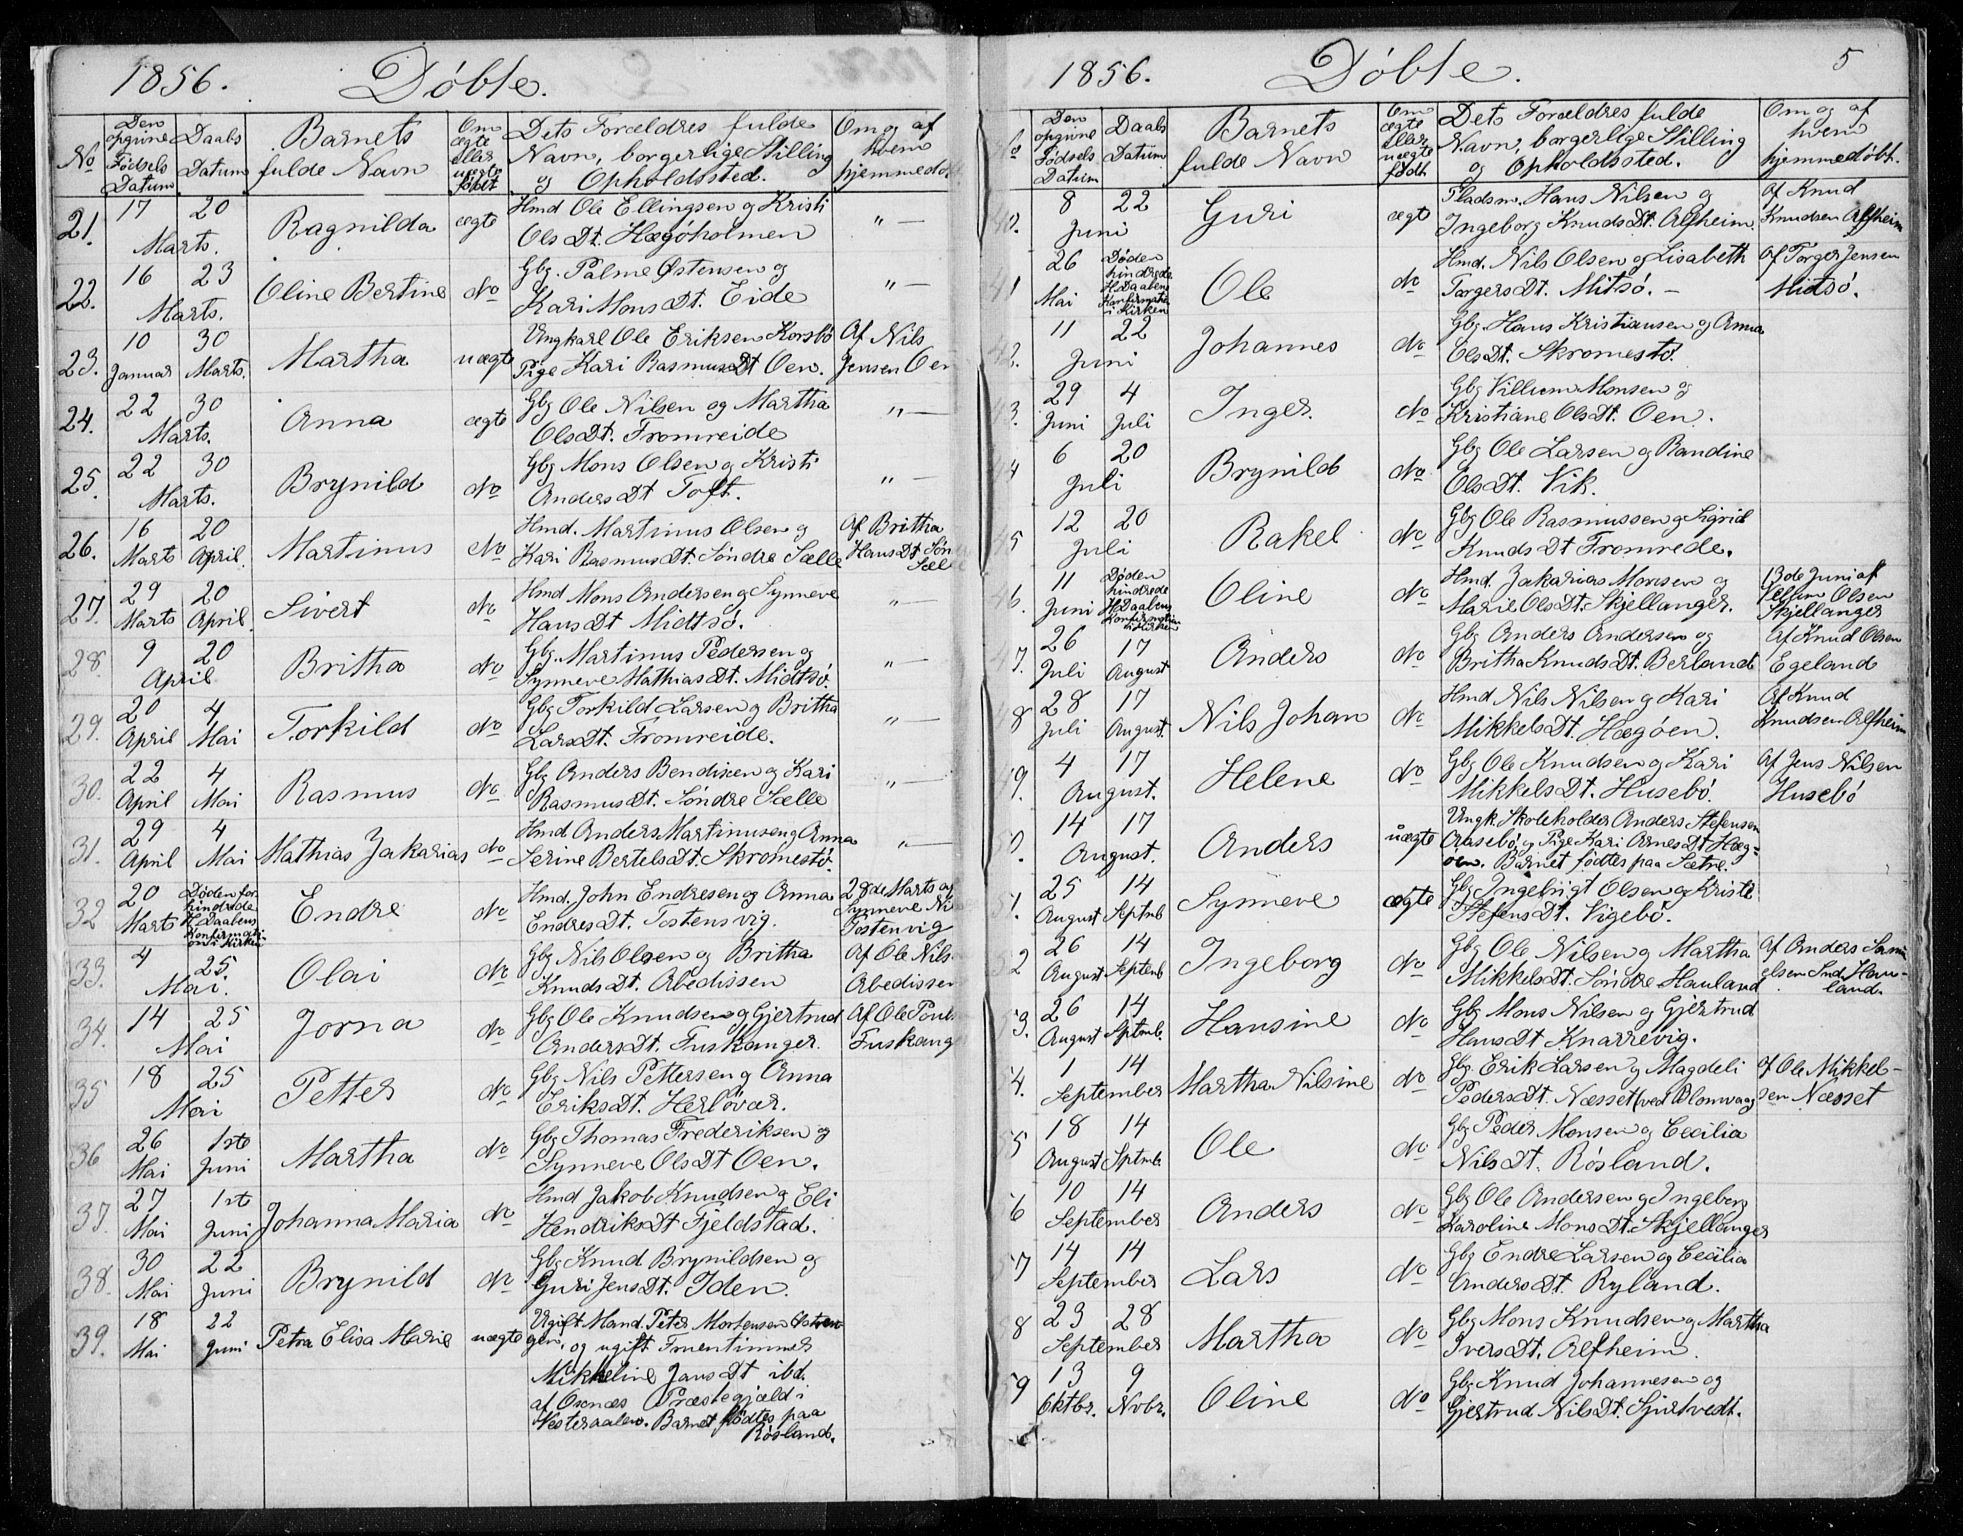 1856. Døbte.
No
Den opgivne Fødsels Datum
Daabs Datum
Barnets fulde Navn
Om ægte eller uægte født
Dets Forældres fulde Navn, borgerlige Stilling og Opholdssted.
Om og af hvem hjemmedøbt
21. 17 20 Marts. Ragnilda ægte Hmd Ole Ellingsen og Kristi "—
Ols Dt. Hægøholmen
22. 16 23 Marts. Oline Bertine do Gbg. Palme Østensen og "—
Kari Mons Dt. Eide
23. 10 Januar 30 Marts. Martha uægte Ungkarl Ole Eriksen Korsø Af Nils
Pige Kari Rasmus Dt Oen. Jensen Oen
24. 22 30 Marts. Anna ægte Gbg Ole Nilsen og Martha "—
Ols Dt. Fromreide
25. 22 30 Marts. Brynild do Gbg Mons Olsen og Kristi "—
Anders Dt Toft.
26. 16 Marts 20 April. Martinus do Hmd. Martinus Olsen og Af Britha
Kari Rasmus Dt. Søndre Sælle Hans Dt Søn
Sælle
27. 29 Marts 20 April. Sivert do Hmd Mons Andersen og Synneve "—
Hans Dt Midtsø.
28. 9 20 April Britha do Gbg. Martinus Pedersen og "—
Synneve Mathias Dt. Midtsø.
29. 20 April 4 Mai Torkild do Gbg Torkild Larsen og Britha "—
Lars Dt. Fromreide.
30. 22 April 4 Mai Rasmus do Gbg Anders Bendixen og Kari "—
Rasmus Dt. Søndre Sælle
31. 29 April 4 Mai Mathias Jakarias do Hmd Anders Martinusen og Anna "—
Serine Bertels Dt. Skromestø.
32 20 Marts Døden forhindrede H. Daabens Konfirmation i Kirken Endre do Hmd. John Endresen og Anna 28de Marts af
Endres Dt. Tostensvig. Synneve Ni
Tostenvig
33. 4 25. Mai. Olai do Gbg Nils Olsen og Britha Af Ole Nils
Knuds Dt. Abedissen Abedissen
34. 14 25 Mai Jorna do Gbg Ole Knudsen og Gjertrud Af Ole Pouls
Anders Dt. Fuskanger. Fuskange
35 18 25 Mai Petter do Gbg Nils Pettersen og Anna
Eriks Dt. Herløvær.
36 26 Mai 1ste Juni Martha do Gbg Thomas Frederiksen og
Synneve Ols Dt Oen.
37. 27 Mai 1ste Juni Johanna Maria do Hmd Jakob Knudsen og Eli
Hendriks Dt Fjeldstad.
38. 30 Mai 22 Juni Brynild do Gbg Knud Brynildsen og
Guri Jens Dt. Iden.
39. 18 Mai 22 Juni Petra Elisa Marie uægte Ugift Mand. Peter Mortensen
og ugift Fruentimmer
Mikkeline Jans Dt ibd.
af Oxnæs Præstegjeld i
Vesteraalen. Barnet fødtes paa
Røsland.
1856. Døbte. 5
Den opgivne Fødsels Datum
Daabs Datum
Barnets fulde Navn
Om ægte eller uægte født.
Dets Forældres fulde Navn, borgerlige Stilling og Opholdssted.
Om og af hvem hjemmedøbt.
40. 8 22 Juni Guri ægt Pladsm. Hans Nilsen og Af Knud
Ingeborg Knuds Dt. Alfheim. Knudsen Alfheim
41 26 Mai Døden hindrede H. Daabens Konfirmation i Kirken Ole do Hmd. Nils Olsen og Lisabeth Af Torger Jensen
Torgers Dt. Mitsø. — Midsø.
42. 11 22 Juni Johannes do Gbg Hans Kristiansen og Anna
Ols Dt. Skromestø.
43. 29 Juni 4 Juli Inger. do Gbg Villum Monsen og
Kristiane Ols Dt. Oen.
44 6 20 Juli Brynild do Gbg Ole Larsen og Randine
Ols Dt. Vik.
45 12 20 Juli Rakel do Gbg Ole Rasmussen og Sigrid
Knuds Dt Fromreide.
46. 11 Juni Døden hindrede H. Daabens Konfirmation i Kirken Oline do Hmd. Jakarias Monsen og 13de Juni af
Marie Ols Dt. Skjellanger. Villum Olsen
Skjellanger
47. 26 Juli 17 August Anders do Gbg Anders Andersen og Af Knud Olsen
Britha Knuds Dt. Berland Egeland
48 28 Juli 17 August. Nils Johan do Hmd Nils Nilsen og Kari Af Knud
Mikkels Dt. Hægøen. Knudsen Alfheim
49. 4 17 August. Helene do Gbg Ole Knudsen og Kari Af Jens Nilsen
Mikkels Dt. Husebø. Husebø
50. 14 17 August. Anders uægte Ungk. Skoleholder Anders Stefensen
Aasebø, og Pige Kari Arnes Dt Hæg-
øen. Barnet fødtes paa Sætre.
51. 25 August 14 Septmb Synneve ægte Gbg Ingebrigt Olsen og Kristi
Stefens Dt. Vigebø.
52 26 August 14 Septemb Ingeborg do Gbg Ole Nilsen og Martha Af Anders Sam
Mikkels Dt. Søndre Hauland uelsen Snd. Hau-
land.
53. 26 August 14 Septmb. Hansine do Gbg Mons Nilsen og Gjertrud
Hans Dt Knarrevig.
54. 1 14 September Martha Nilsine do Gbg. Erik Larsen og Magdeli Af Ole Mikkel-
Peders Dt. Næsset (ved Blomvaag sen Næsset
55 18 August 14 Sptmb. Ole do Gbg Peder Monsen og Cecilia
Nils Dt. Røsland.
56 10 14 September Anders do Gbg Ole Andersen og Ingeborg
Karoline Mons Dt. Skjellanger
57 14 14 September Lars do Gbg Endre Larsen og Cecilia
Anders Dt. Ryland.
58 23 28 September Martha do Gbg Mons Knudsen og Martha
Ivers Dt. Alfheim.
59 13 Oktbr. 9 Novbr. Oline do Gbg Knud Johannesen og
Gjertrud Nils Dt. Sjurtvedt.